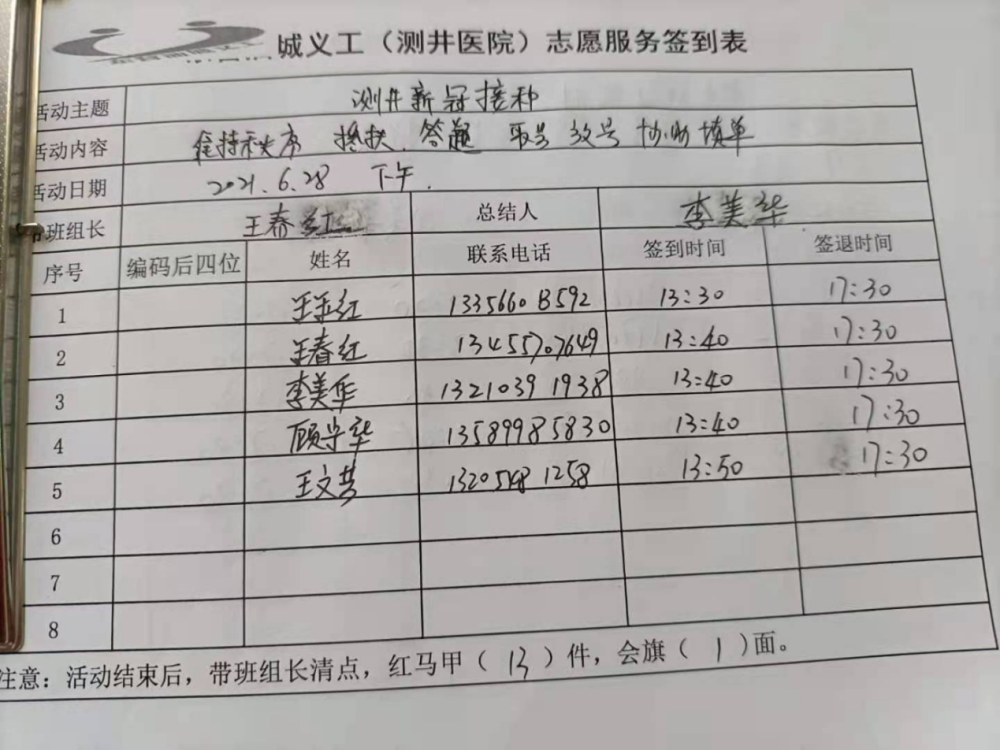 城义工（测井医院）志愿服务签到表
活动主题 测井新冠接种
活动内容 维持秩序 答题 取号 放号 协助填单
活动日期 2021.6.28 下午.
带班组长 王春红 总结人 李美华
序号 编码后四位 姓名 联系电话 签到时间 签退时间
1 王玉红 1335660 8592 13:30 17:30
2 王春红 13455707649 13:40 17:30
3 李美华 1321039 1938 13:40 17:30
4 顾守华 13589985830 13:40 17:30
5 王文芬 1258 13:50 17:30
6
7
8
注意：活动结束后，带班组长清点，红马甲（ 13 ）件，会旗（ 1 ）面。